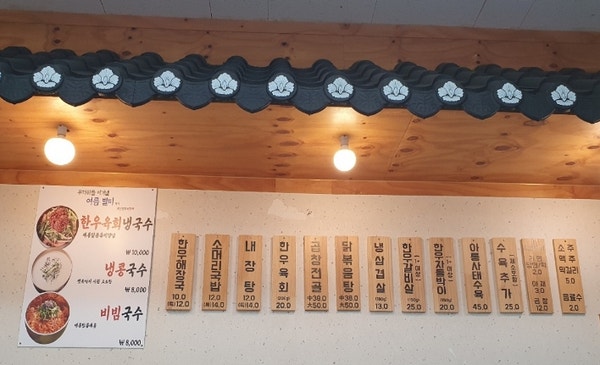 여름 별미
한우육회냉국수
₩10,000
냉콩국수
₩8,000
비빔국수
₩8,000
한우해장국
10.0
(특)12.0
소머리국밥
12.0
(특)14.0
내장탕
12.0
(특)14.0
한우육회
(200g)
20.0
곱창전골
中38.0
大50.0
닭볶음탕
中38.0
大50.0
냉삼겹살
(180g)
13.0
한우갈비살
25.0
한우차돌박이
20.0
아롱사태수육
45.0
수육추가
25.0
소주
맥주
막걸리
5.0
음료수
2.0